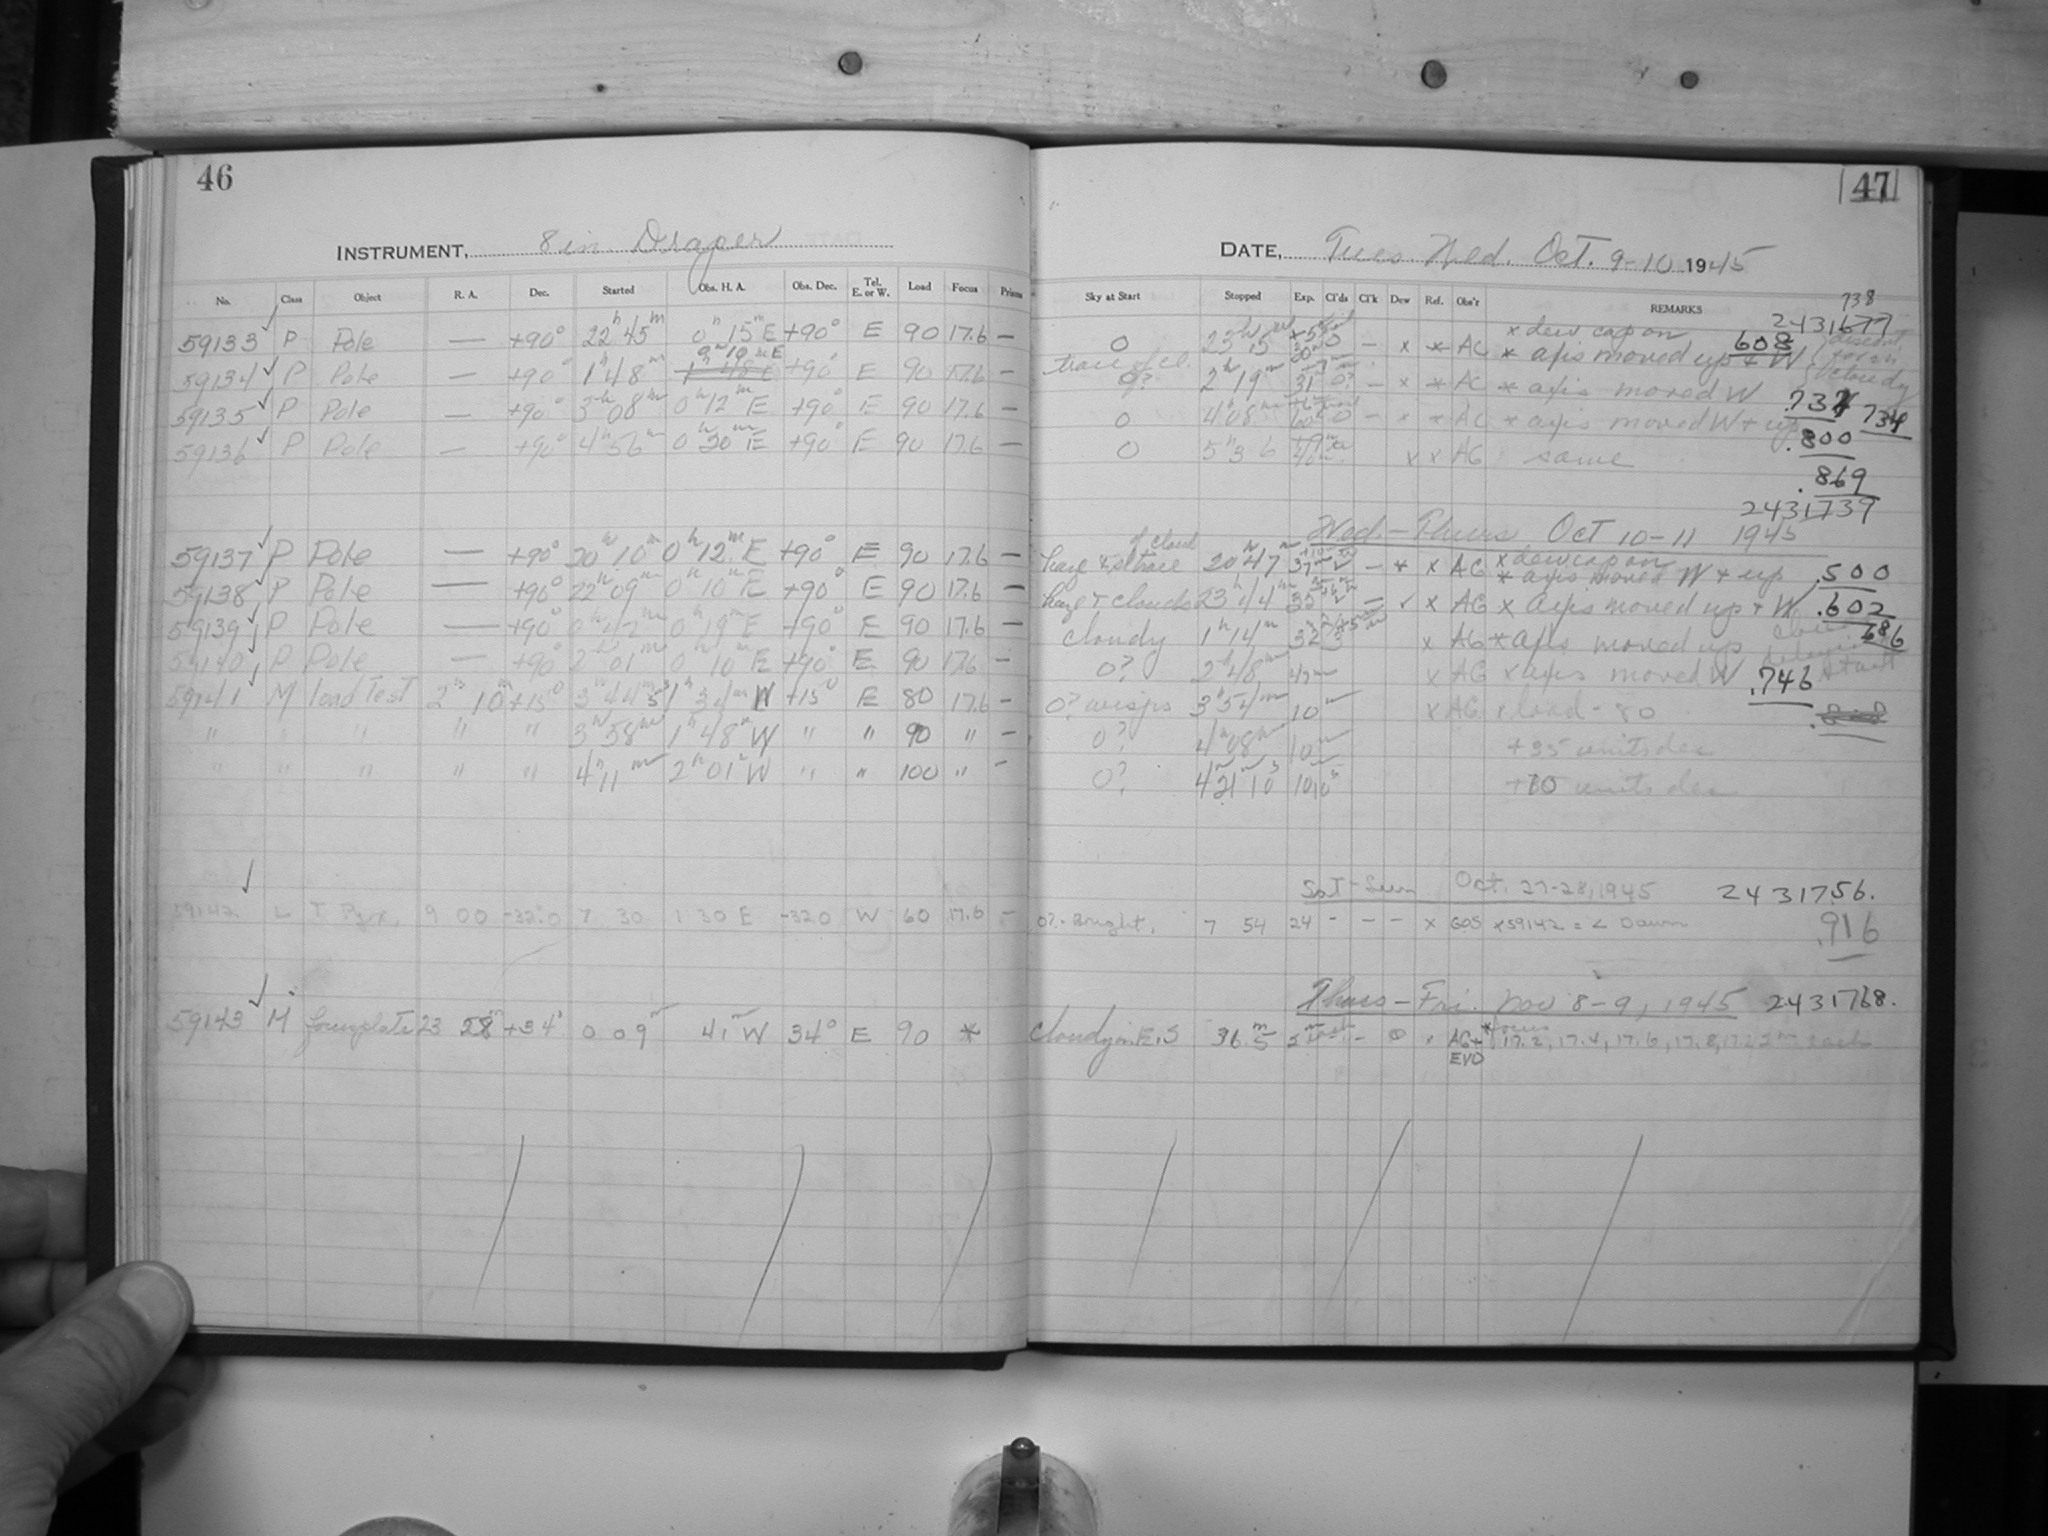 46
INSTRUMENT, 8 in. Draper
No. Class Object R. A. Dec. Started Obs. H. A. Obs. Dec. Tel. E. or W. Load Focus Prism
59133 P Pole — +90° 22h 45m 0h 15m E +90° E 90 17.6 —
0h 10m E
59134 P Pole — +90° 1h 48m +90° E 90 17.6 —
59135 P Pole — +90° 3h 08m 0h 12m E +90° E 90 17.6 —
59136 P Pole — +90° 4h 56m 0h 20m E +90° E 90 17.6 —
59137 P Pole — +90° 20h 10m 0h 12m E +90° E 90 17.6 —
59138 P Pole — +90° 22h 09m 0h 10m E +90° E 90 17.6 —
59139 P Pole — +90° 0h 42m 0h 19m E +90° E 90 17.6 —
59140 P Pole — +90° 2h 01m 0h 10m E +90° E 90 17.6 —
59141 M load Test 2h 10m +15° 3h 44m 5s 1h 34m W +15° E 80 17.6 —
" " " " " 3h 58m 1h 48m W " " 90 " —
" " " " " 4h 11m 2h 01m W " " 100 " —
59142 L T Pyx. 9 00 -32.0 7 30 1 30 E -32.0 W 60 17.6 —
59143 M focus plate 23 28m +34° 0 09m 41m W 34° E 90 *
47
DATE, Tues. Wed. Oct. 9-10 1945
Sky at Start Stopped Exp. Cl'ds Cl'k Dew Ref. Obs'r REMARKS
738
2431677
0 23h 15m 30m 0 — x * AG x dew cap on
* axis moved up + W 608
trace of cl.
0? 2h 19m 31m 0? — x * AG * axis moved W .737
0 4h 08m 60m 0 — x x AG x axis moved W + up 734
.800
0 5h 36 40m x x AG same
.869
2431739
Wed - Thurs Oct 10-11 1945
haze & st trace of cloud 20h 47m 37m — * x AG x dew cap on
* axis moved W + up .500
haze + clouds 23h 44m 35m — ✓ x AG x axis moved up + W .602
cloudy 1h 14m 32 3 x AG * axis moved up 686
0? 2h 48m 47m x AG x axis moved W .746
0? wisps 3h 54m 10m x AG x load - 80
0? 4h 08m 10m +35 units dec
0? 4h 21m 10s 10m 10s +70 units dec
Sat - Sun Oct. 27-28, 1945 2431756.
0? - Bright. 7 54 24 - — — x GOS x 59142 = L Dawn .916
Thurs - Fri. Nov 8-9, 1945 2431768.
cloudy in E, S 36m 5 2m each - x AG + EVD * focus 17.2, 17.4, 17.6, 17.8, 17.2 2m each